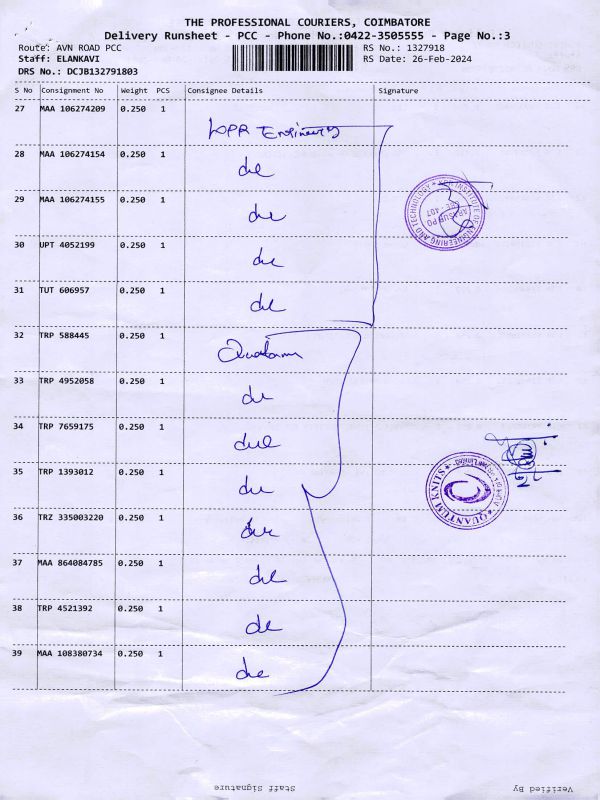 THE PROFESSIONAL COURIERS, COIMBATORE
Delivery Runsheet - PCC - Phone No.:0422-3505555 - Page No.:3
Route: AVN ROAD PCC
RS No.: 1327918
Staff: ELANKAVI
RS Date: 26-Feb-2024
DRS No.: DCJB132791803
S No Consignment No Weight PCS Consignee Details Signature
27 MAA 106274209 0.250 1
28 MAA 106274154 0.250 1
29 MAA 106274155 0.250 1
30 UPT 4052199 0.250 1
31 TUT 606957 0.250 1
32 TRP 588445 0.250 1
33 TRP 4952058 0.250 1
34 TRP 7659175 0.250 1
35 TRP 1393012 0.250 1
36 TRZ 335003220 0.250 1
37 MAA 864084785 0.250 1
38 TRP 4521392 0.250 1
39 MAA 108380734 0.250 1
QUANTUM KNITS
Staff Signature
Verified By